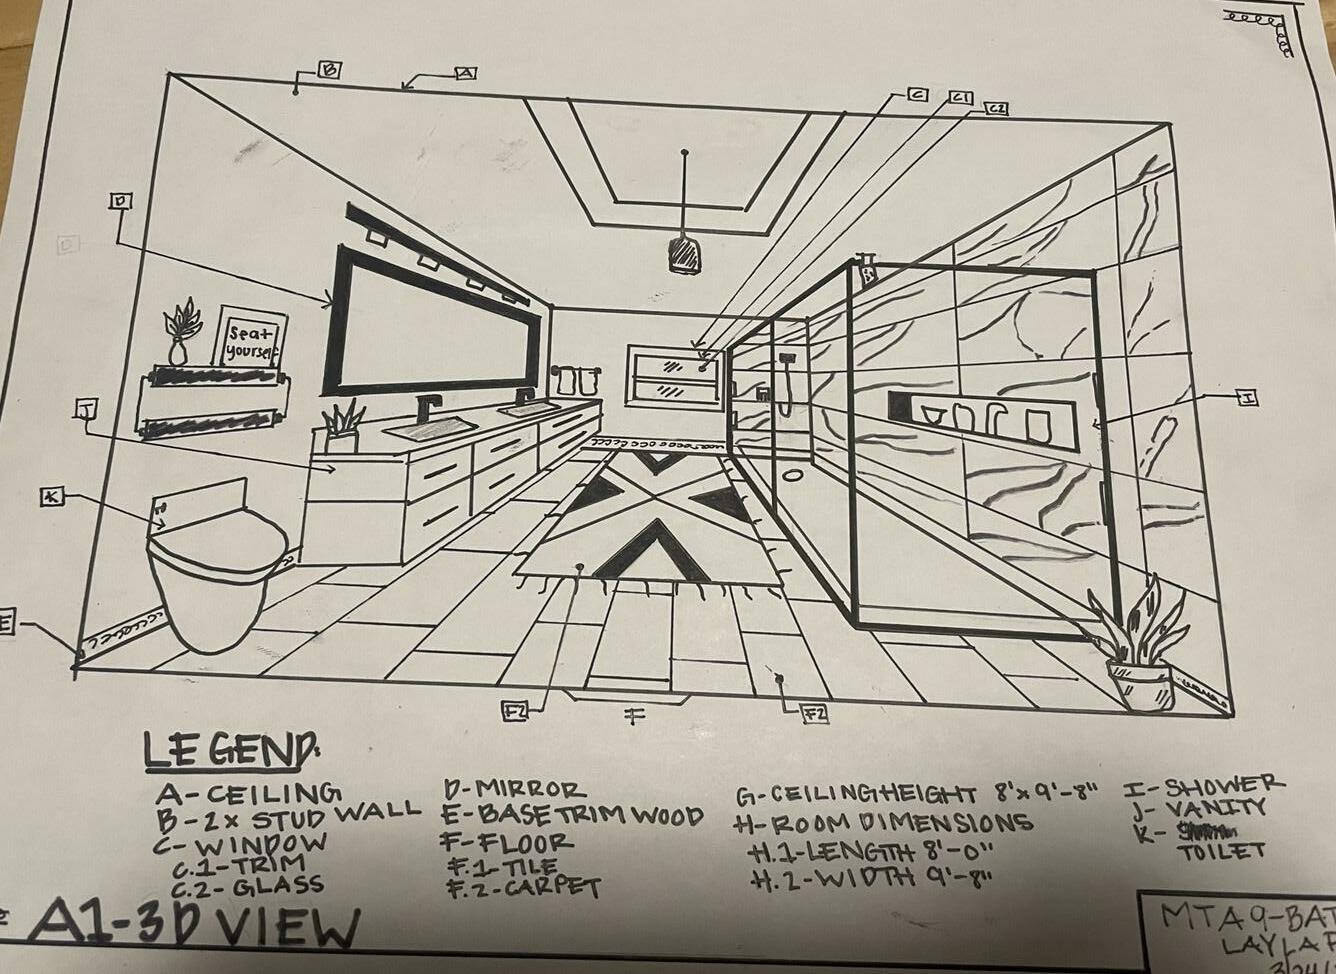 B
A
C
C1
C2
D
D
Seat
yourself
J
I
K
E
F2
F
F2
LEGEND:
A-CEILING
B-2x STUD WALL
C-WINDOW
C.1-TRIM
C.2-GLASS
D-MIRROR
E-BASE TRIM WOOD
F-FLOOR
F.1-TILE
F.2-CARPET
G-CEILING HEIGHT 8'x9'-8"
H-ROOM DIMENSIONS
H.1-LENGTH 8'-0"
H.2-WIDTH 9'-8"
I-SHOWER
J-VANITY
K-
TOILET
A1-3D VIEW
MTA9-BAT
LAYLA
3/24/